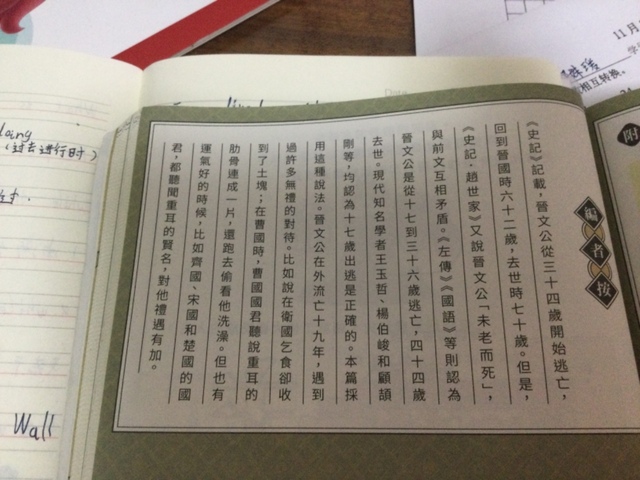 編者按
《史記》記載，晉文公從三十四歲開始逃亡，
回到晉國時六十二歲，去世時七十歲。但是，
《史記·趙世家》又說晉文公「未老而死」，
與前文互相矛盾。《左傳》《國語》等則認為
晉文公是從十七到三十六歲逃亡，四十四歲
去世。現代知名學者王玉哲、楊伯峻和顧頡
剛等，均認為十七歲出逃是正確的。本篇採
用這種說法。晉文公在外流亡十九年，遇到
過許多無禮的對待。比如說在衛國乞食卻收
到了土塊；在曹國時，曹國國君聽說重耳的
肋骨連成一片，還跑去偷看他洗澡。但也有
運氣好的時候，比如齊國、宋國和楚國的國
君，都聽聞重耳的賢名，對他禮遇有加。
附
（过去进行时）
Wall
11月
相互转换。